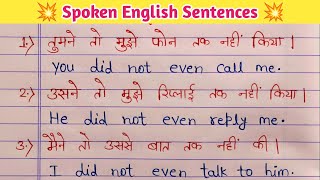 💥 Spoken English Sentences 💥
1.) तुमने तो मुझे फोन तक नहीं किया।
You did not even call me.
2.) उसने तो मुझे रिप्लाई तक नहीं किया।
He did not even reply me.
3.) मैने तो उससे बात तक नहीं की।
I did not even talk to him.